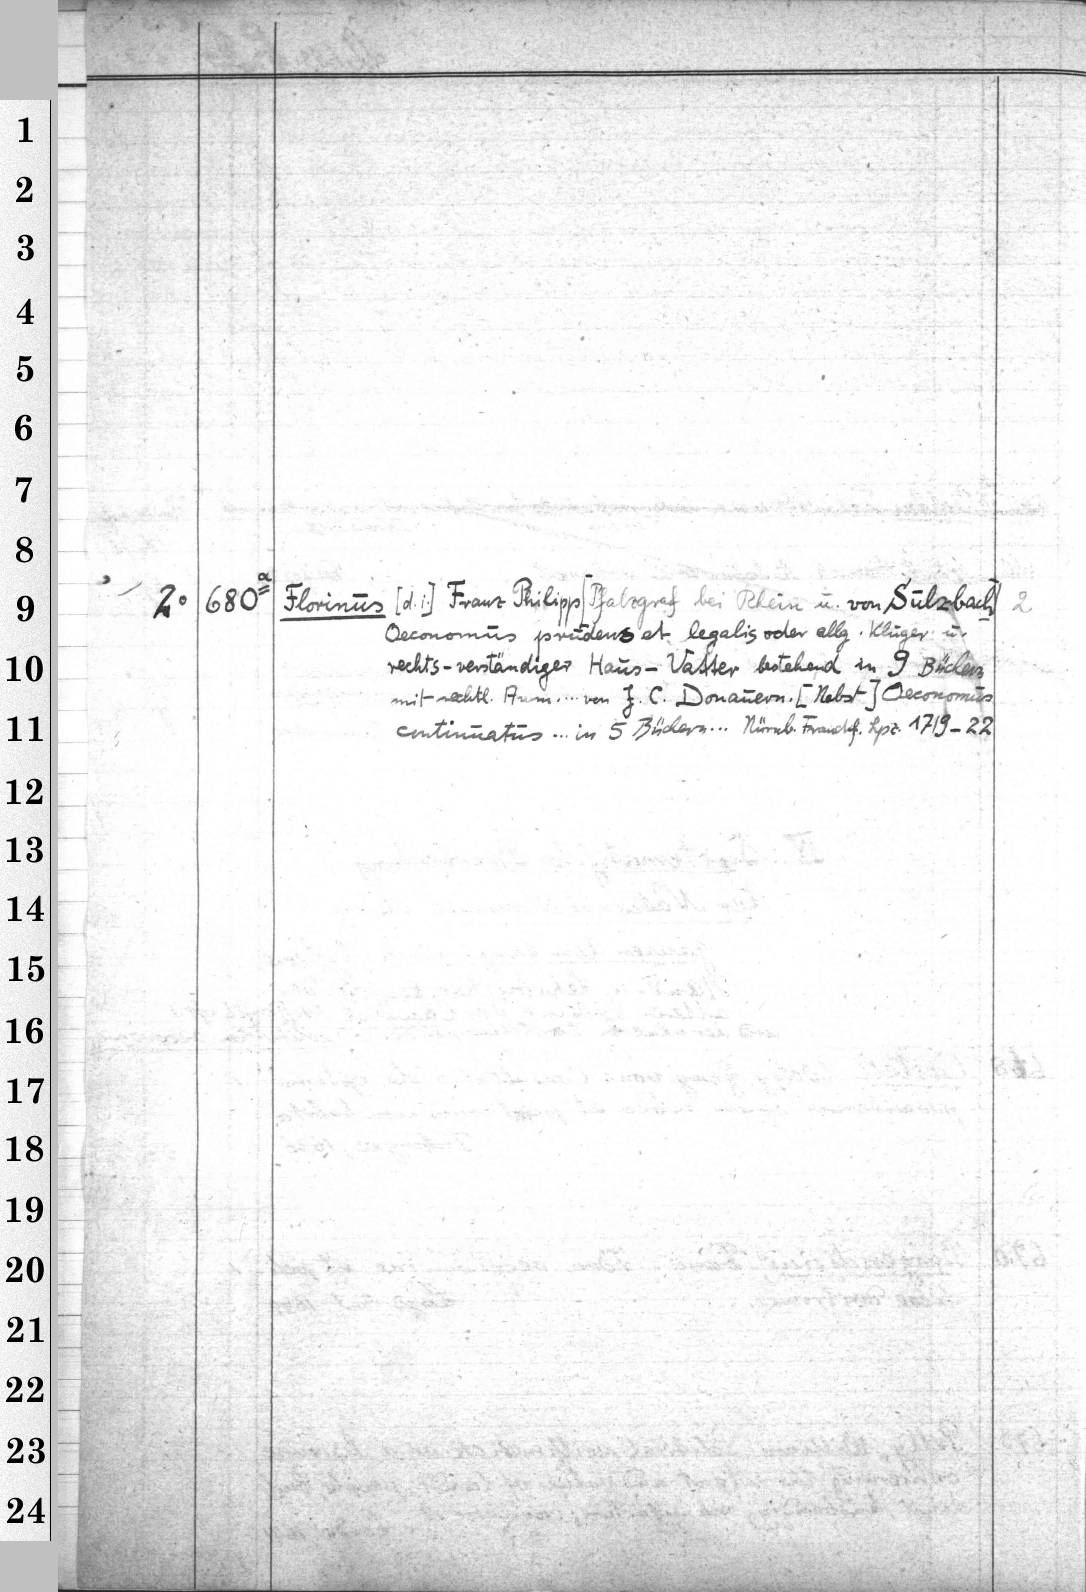 1
2
3
4
5
6
7
8
9 2° 680α Florinus [d. i.] Franz Philipp [Pfalzgraf bei Rhein u. von Sulzbach] 2
Oeconomus prudens et legalis oder allg. Kluger u.
10 rechts-verständiger Haus-Vatter bestehend in 9 Büchern
mit rechtl. Anm. ... von J. C. Donauern. [Nebst] Oeconomus
11 continuatus ... in 5 Büchern ... Nürnb. Franckf. Lpz. 1719-22
12
13
14
15
16
17
18
19
20
21
22
23
24